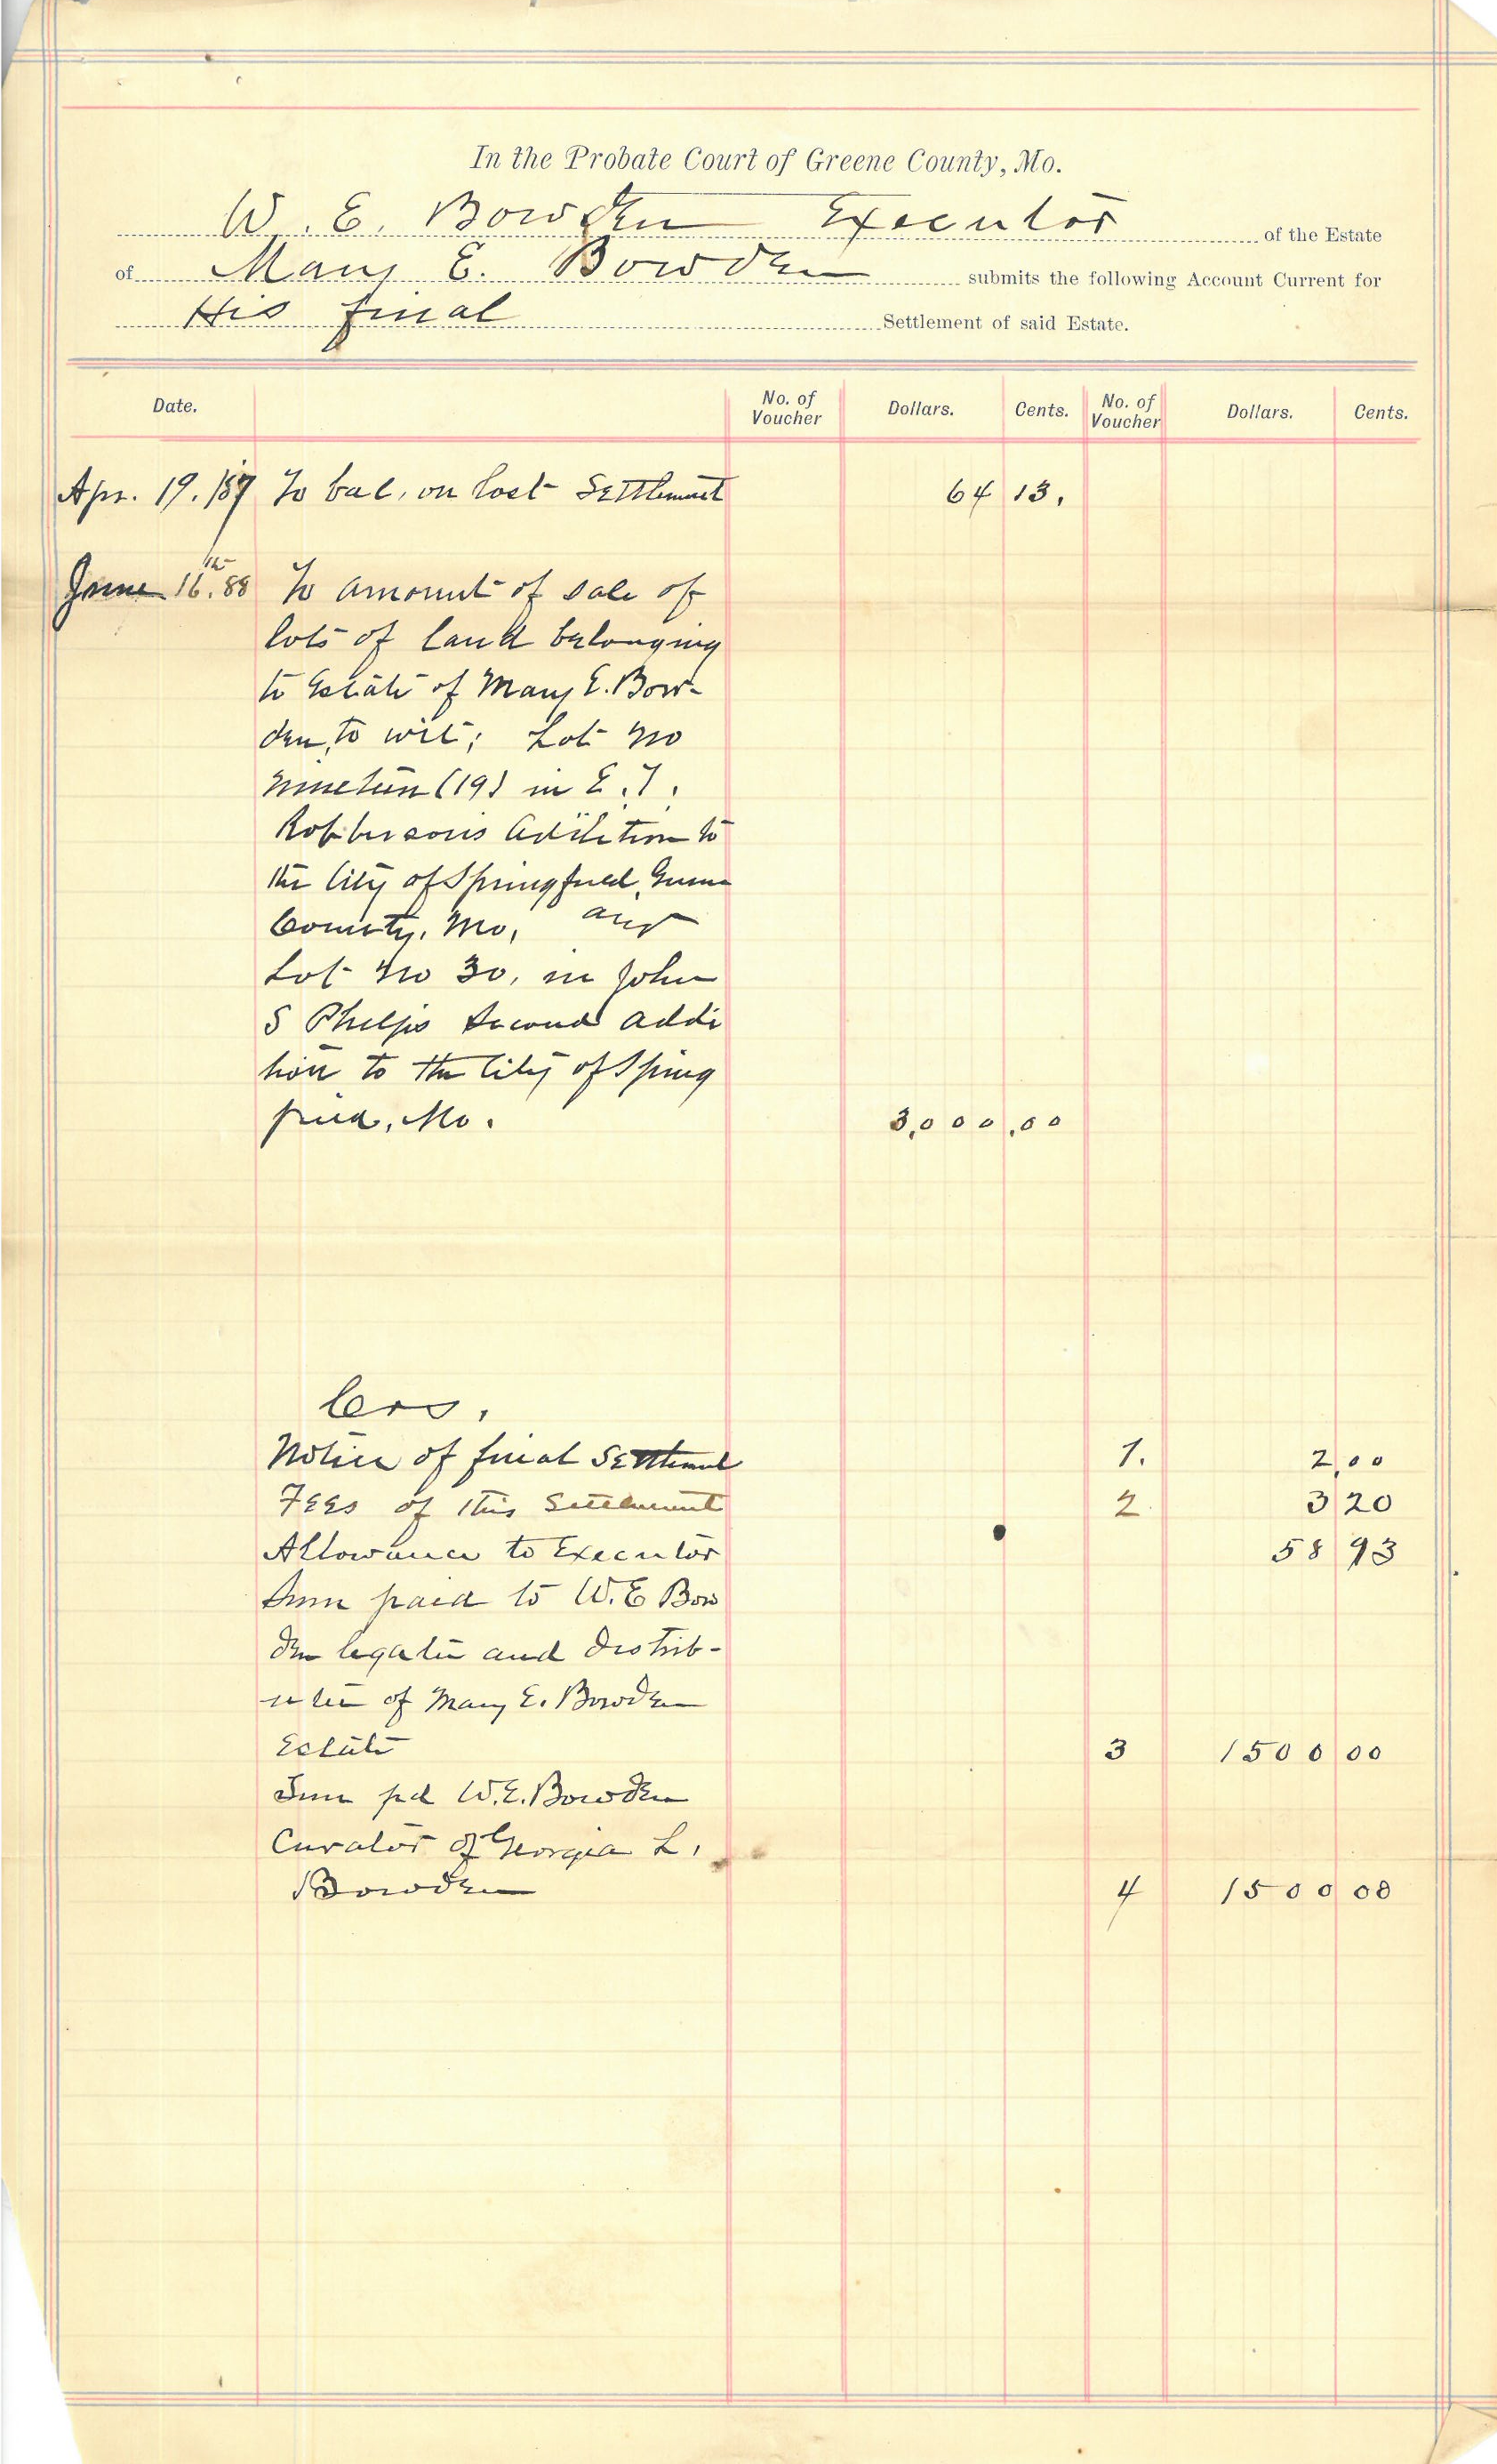 In the Probate Court of Greene County, Mo.
W. E. Bowden Executor of the Estate
of Mary E. Bowden submits the following Account Current for
His final Settlement of said Estate.
Date. No. of Voucher Dollars. Cents. No. of Voucher Dollars. Cents.
Apr. 19. /87 To bal. on last Settlement 64 13.
June 16th. 88 To amount of sale of
lots of land belonging
to Estate of Mary E. Bow-
den, to wit; Lot No
Nineteen (19) in E. T.
Robbersons Addition to
the City of Springfield, Greene
County, Mo, and
Lot No 30, in John
S Phelps Second addi
tion to the City of Spring
field, Mo. 3,000.00
Crs.
Notice of final Settlement 1. 2.00
Fees of this Settlement 2 3 20
Allowance to Executor 58 93
Sum paid to W. E Bow
den legatee and distrib-
utee of Mary E. Bowden
Estate 3 1500 00
Sum pd W. E. Bowden
Curator of Georgia L.
Bowden 4 1500 00